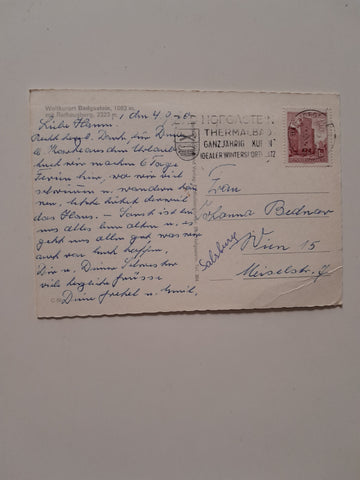 Weltkurort Badgastein, 1083 m,
mit Rathausberg,
Liebe Hanni, den 4.
Recht herzl. Dank für Deine
Karte aus dem Urlaub
auch wir machen 6 Tage
Ferien hier, wo wir viel
schwimm u. wandern
das Haus. – Sonst ist bei
uns alles beim alten u. es
geht uns allen gut was wir
auch von Euch hoffen,
Dir u. Deiner Schwester
viele herzliche Grüsse
Deine Gretel u. Emil.
HOFGASTEIN
THERMALBAD
GANZJÄHRIG KUREN
IDEALER WINTERSPORTPLATZ
Frau
Johanna Bednar
Salzburg
Wien 15
Meiselstr.